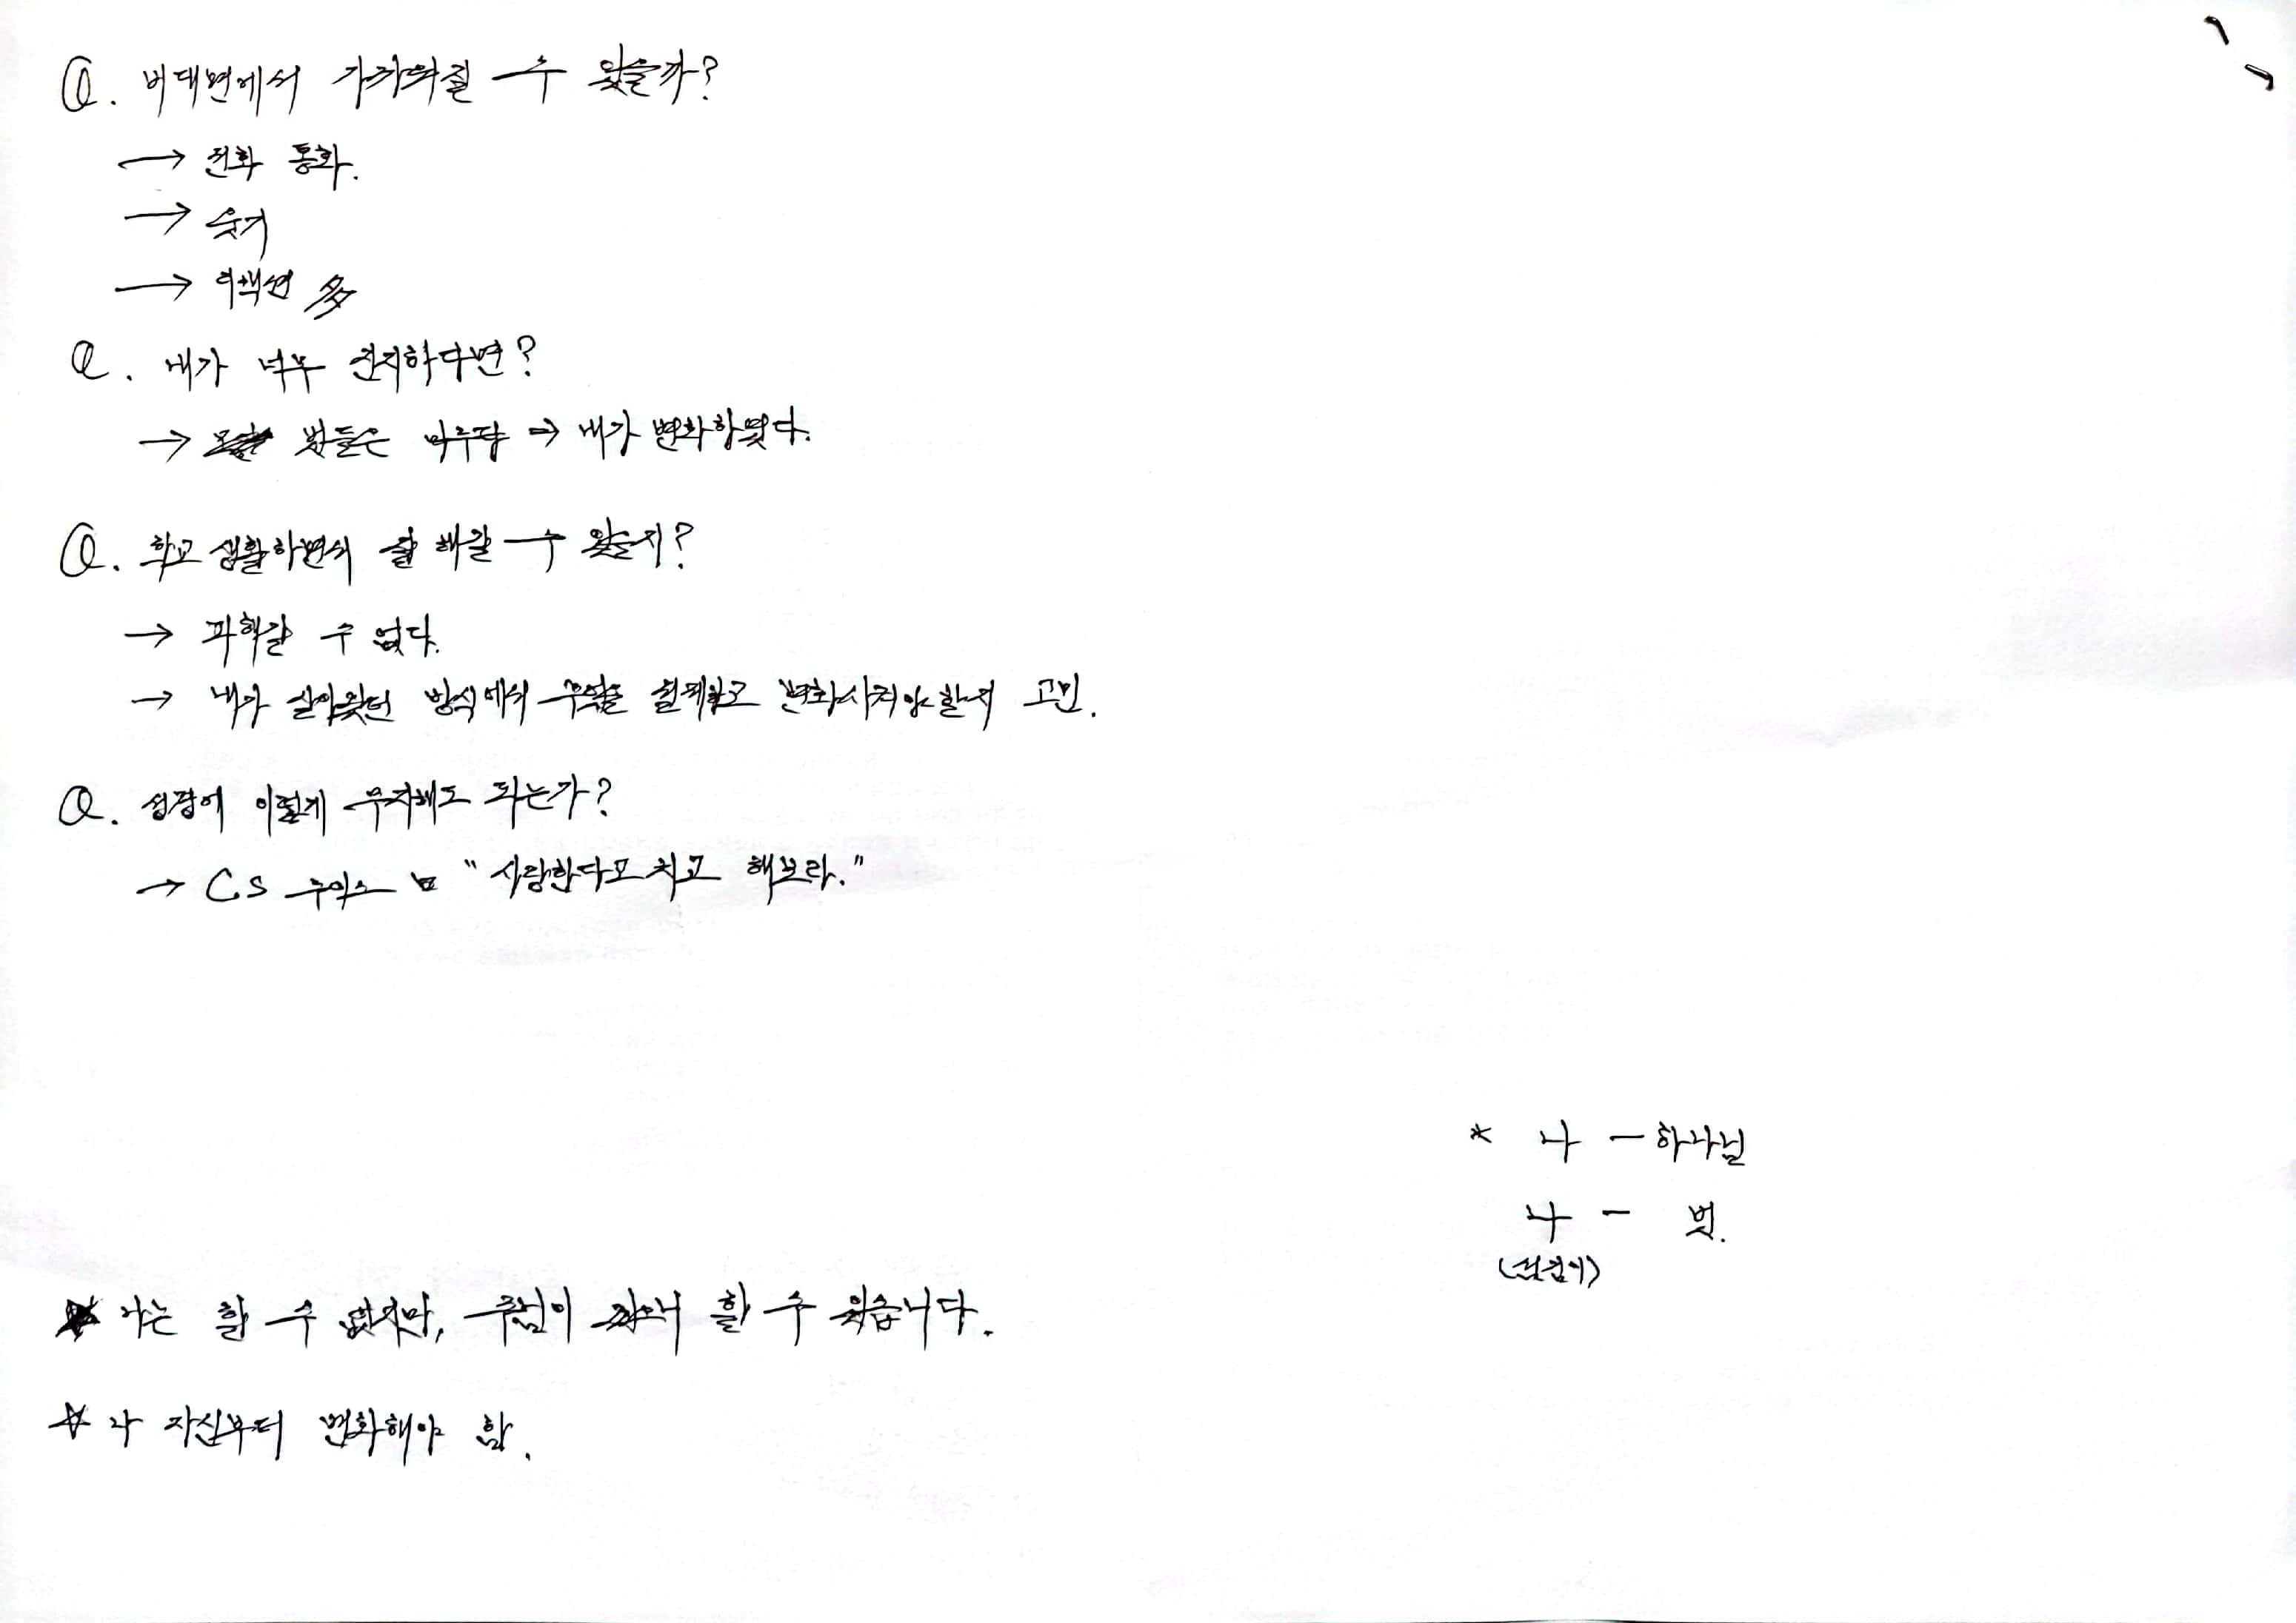 Q. 비대면에서 가까워질 수 있을까?
→ 전화 통화.
→ 웃기
→ 리액션 多
Q. 내가 너무 진지하다면?
→ 벗들은 마루타 → 내가 변화하였다.
Q. 학교 생활하면서 잘 해갈 수 있을지?
→ 피해갈 수 없다.
→ 내가 살아왔던 방식에서 무엇을 회개하고 변화시켜야 할지 고민.
Q. 성경에 이렇게 무지해도 되는가?
→ CS 루이스 "사랑한다고 치고 해보라."
* 나 - 하나님
나 - 벗.
(섬김이)
★ 나는 할 수 없지만, 주님이 하시니 할 수 있습니다.
★ 나 자신부터 변화해야 함.